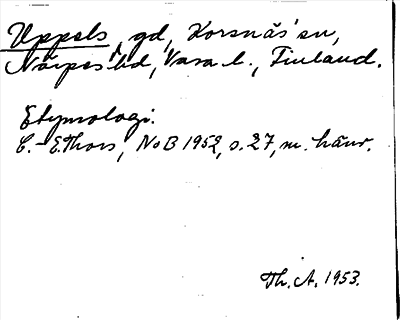 Uppals, gd, Korsnäs sn,
Närpes hd, Vasa l., Finland.
Etymologi.
C.-E. Thors, NoB 1952, s. 27, m. hänv.
Th. A. 1953.